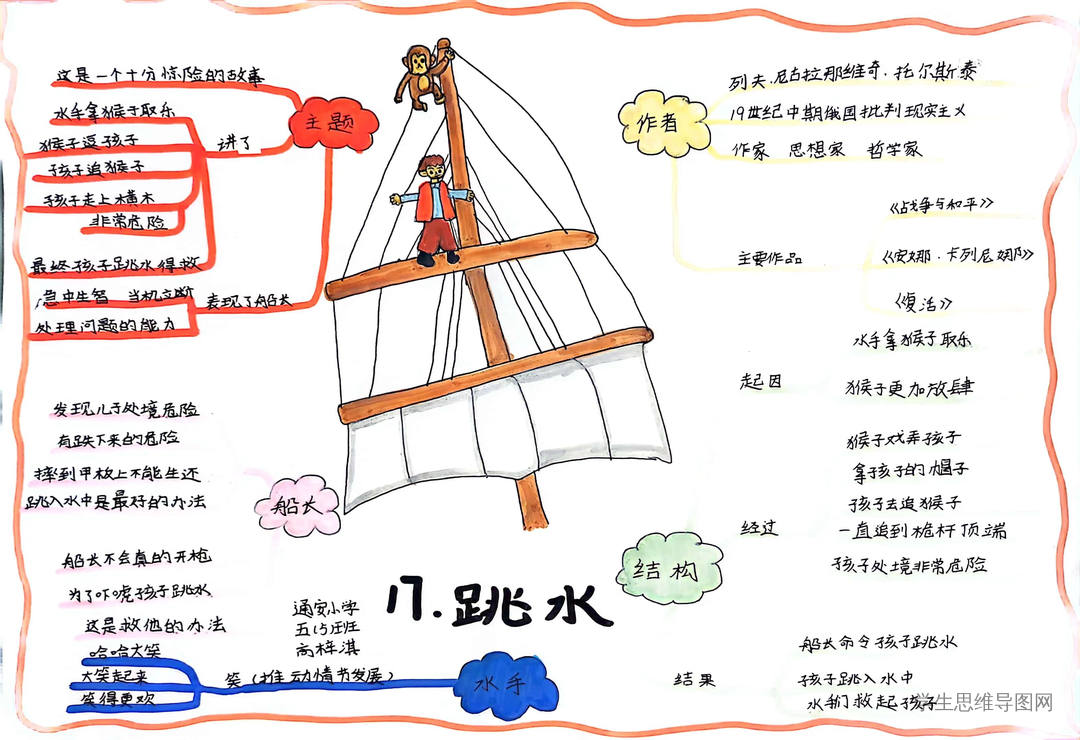 17.跳水
通安小学
五(5)班
高梓淇
主题
讲了
这是一个十分惊险的故事
水手拿猴子取乐
猴子逗孩子
孩子追猴子
孩子走上横木
非常危险
最终孩子跳水得救
表现了船长
急中生智 当机立断
处理问题的能力
船长
发现儿子处境危险
有跌下来的危险
摔到甲板上不能生还
跳入水中是最好的办法
船长不会真的开枪
为了吓唬孩子跳水
这是救他的办法
水手
笑(推动情节发展)
哈哈大笑
大笑起来
笑得更欢
作者
列夫.尼古拉耶维奇.托尔斯泰
19世纪中期俄国批判现实主义
作家 思想家 哲学家
主要作品
《战争与和平》
《安娜.卡列尼娜》
《复活》
结构
起因
水手拿猴子取乐
猴子更加放肆
经过
猴子戏弄孩子
拿孩子的帽子
孩子去追猴子
一直追到桅杆顶端
孩子处境非常危险
结果
船长命令孩子跳水
孩子跳入水中
水手们救起孩子
学生思维导图网